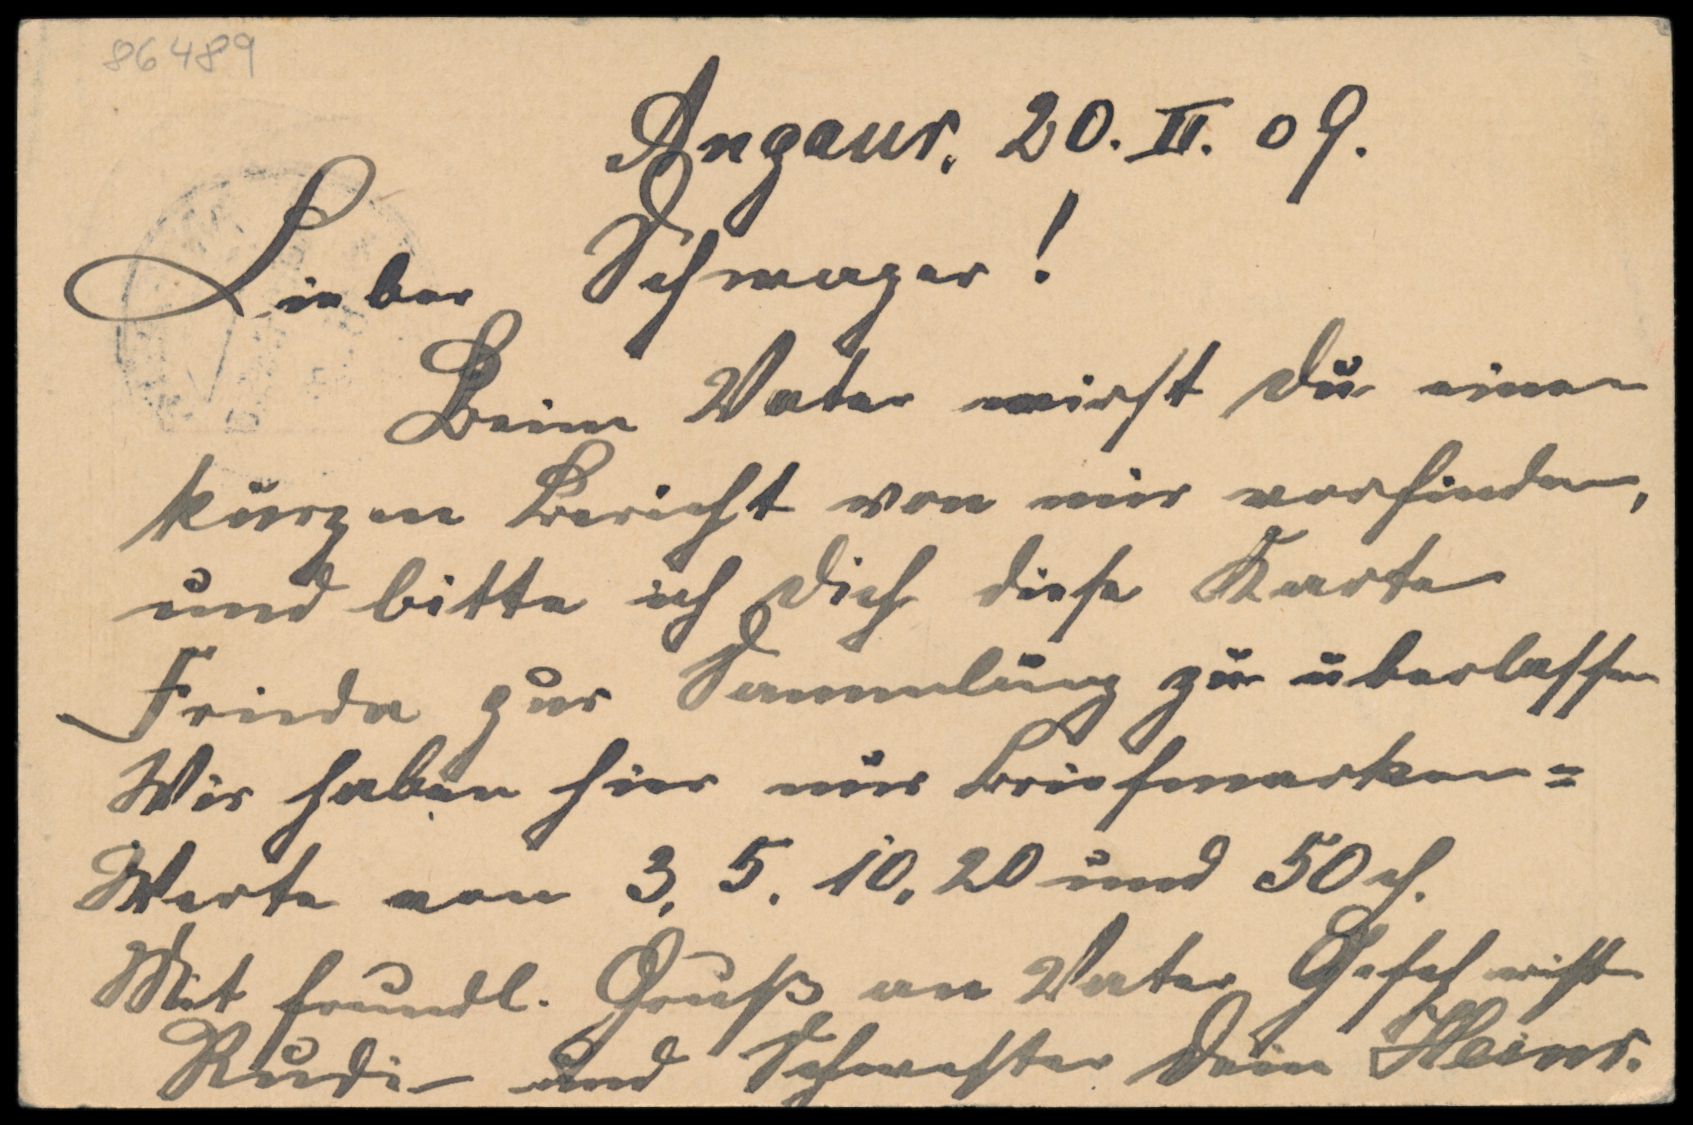 86489
Angaur, 20. II. 09.
Lieber Schwager!
Beim Vater wirst Du einen
kurzen Bericht von mir vorfinden,
und bitte ich Dich diese Karte
Frieda zur Sammlung zu überlassen
Wir haben hier nur Briefmarken=
Werte von 3, 5. 10, 20 und 50 ch.
Mit freundl. Gruß an Vater Geschwist
Rudi und Schwester Dein